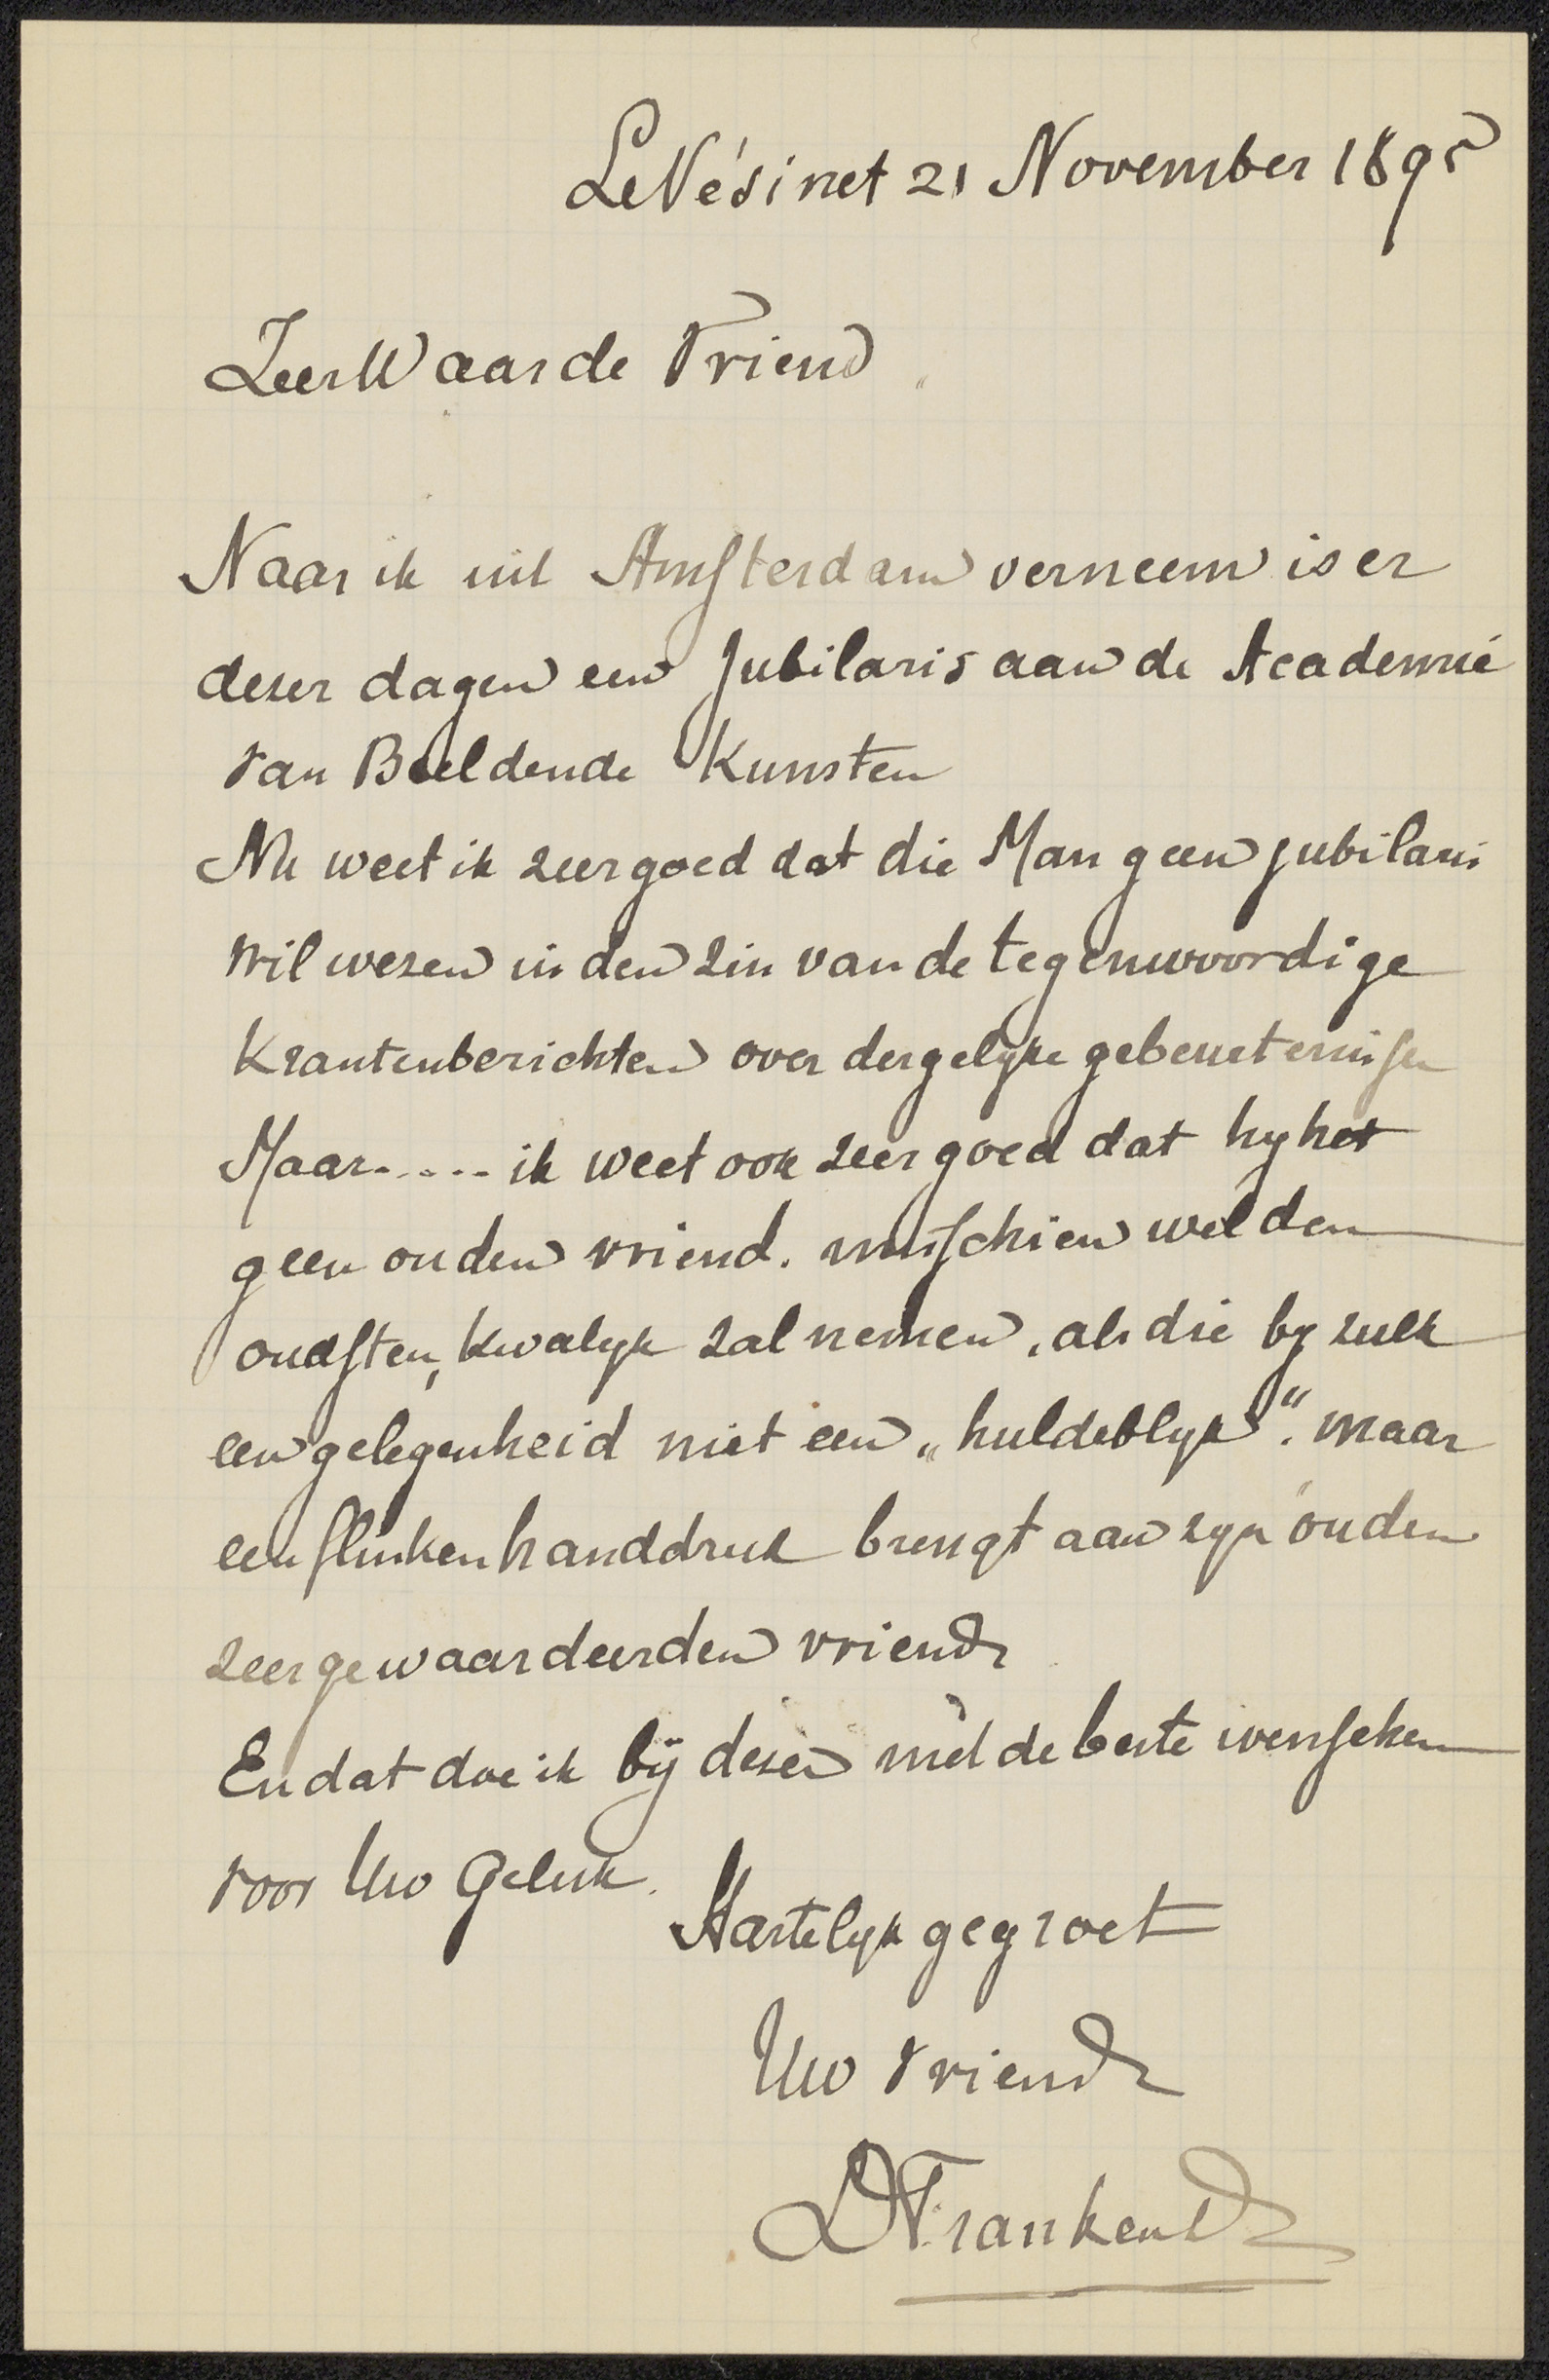 Le Vésinet 21 November 1895
Zeer Waarde Vriend
Naar ik uit Amsterdam verneem is er
dezer dagen een Jubilaris aan de Academie
van Beeldende Kunsten
Nu weet ik zeer goed dat die Man geen jubilaris
wil wezen in den zin van de tegenwoordige
Krantenberichten over dergelyke gebeurtenissen
Maar..... ik weet ook zeer goed dat hy het
geen ouden vriend. misschien wel den
oudsten, kwalyk zal nemen, als die by zulk
een gelegenheid niet een „huldeblyk". maar
een flinken handdruk brengt aan zyn ouden
zeer gewaardeerden vriend
En dat doe ik bij dezen met de beste wenschen
voor Uw Geluk.
Hartelyk gegroet
Uw Vriend
D Franken Dz